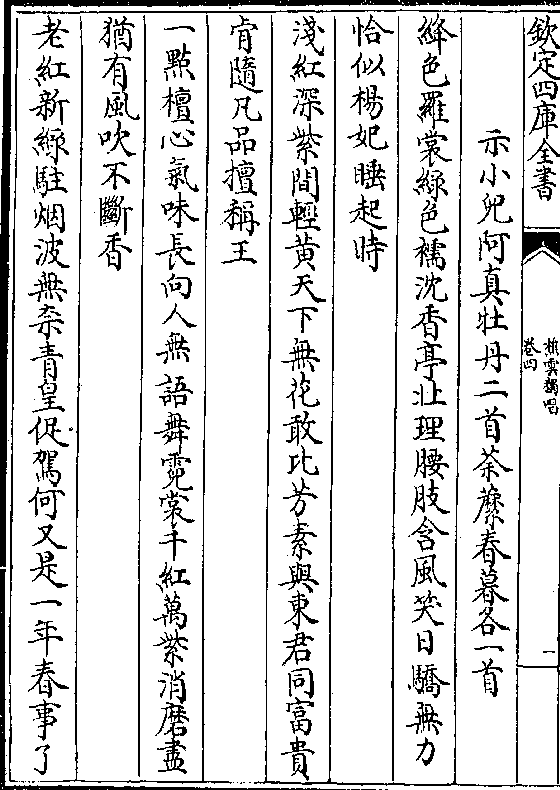 欽定四庫全書
樵雲獨唱
卷四
一
示小兒阿真牡丹二首荼䕷春暮各一首
絳色羅裳綠色襦沈香亭北理腰肢含風笑日驕無力
恰似楊妃睡起時
淺紅深紫間輕黃天下無花敢比芳素與東君同富貴
肯隨凡品擅稱王
一點檀心氣味長向人無語舞霓裳千紅萬紫消磨盡
猶有風吹不斷香
老紅新綠駐烟波無奈青皇促駕何又是一年春事了